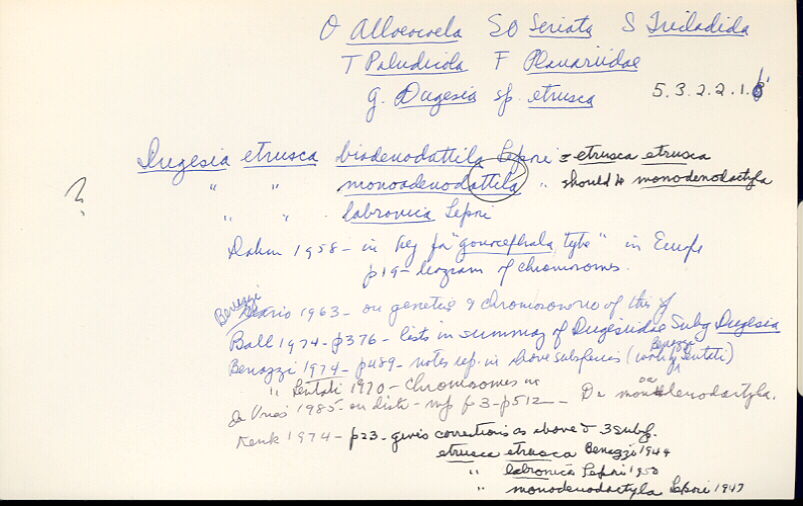 O Alloeocoela SO Seriata S Tricladida
T Paludicola F Planariidae
g. Dugesia sp. etrusca 5.3.2.2.1.
Dugesia etrusca biadenodattila Lepori = etrusca etrusca
? " " monoadenodattila " should be monodenodactyla
" " labronica Lepori
Dahm 1958 - in key for "gonocephala type" in Europe
p19 - of chromosomes.
Benazzi 1963 - on genetics & chromosome no of this sp
Ball 1974 - p376 - lists in summary of Dugesiidae Subg Dugesia
Benazzi 1974 - p489 - notes rep. in above subspecies (Benazzi & Lentati)
" Lentati 1970 - chromosomes in
de Vries 1985 - on distr - map p 3 - p512 - Du
Kenk 1974 - p23 - gives corrections as above & 3 subsp.
etrusca etrusca Benazzi 1944
" labronica Lepori 1950
" monodenodactyla Lepori 1947